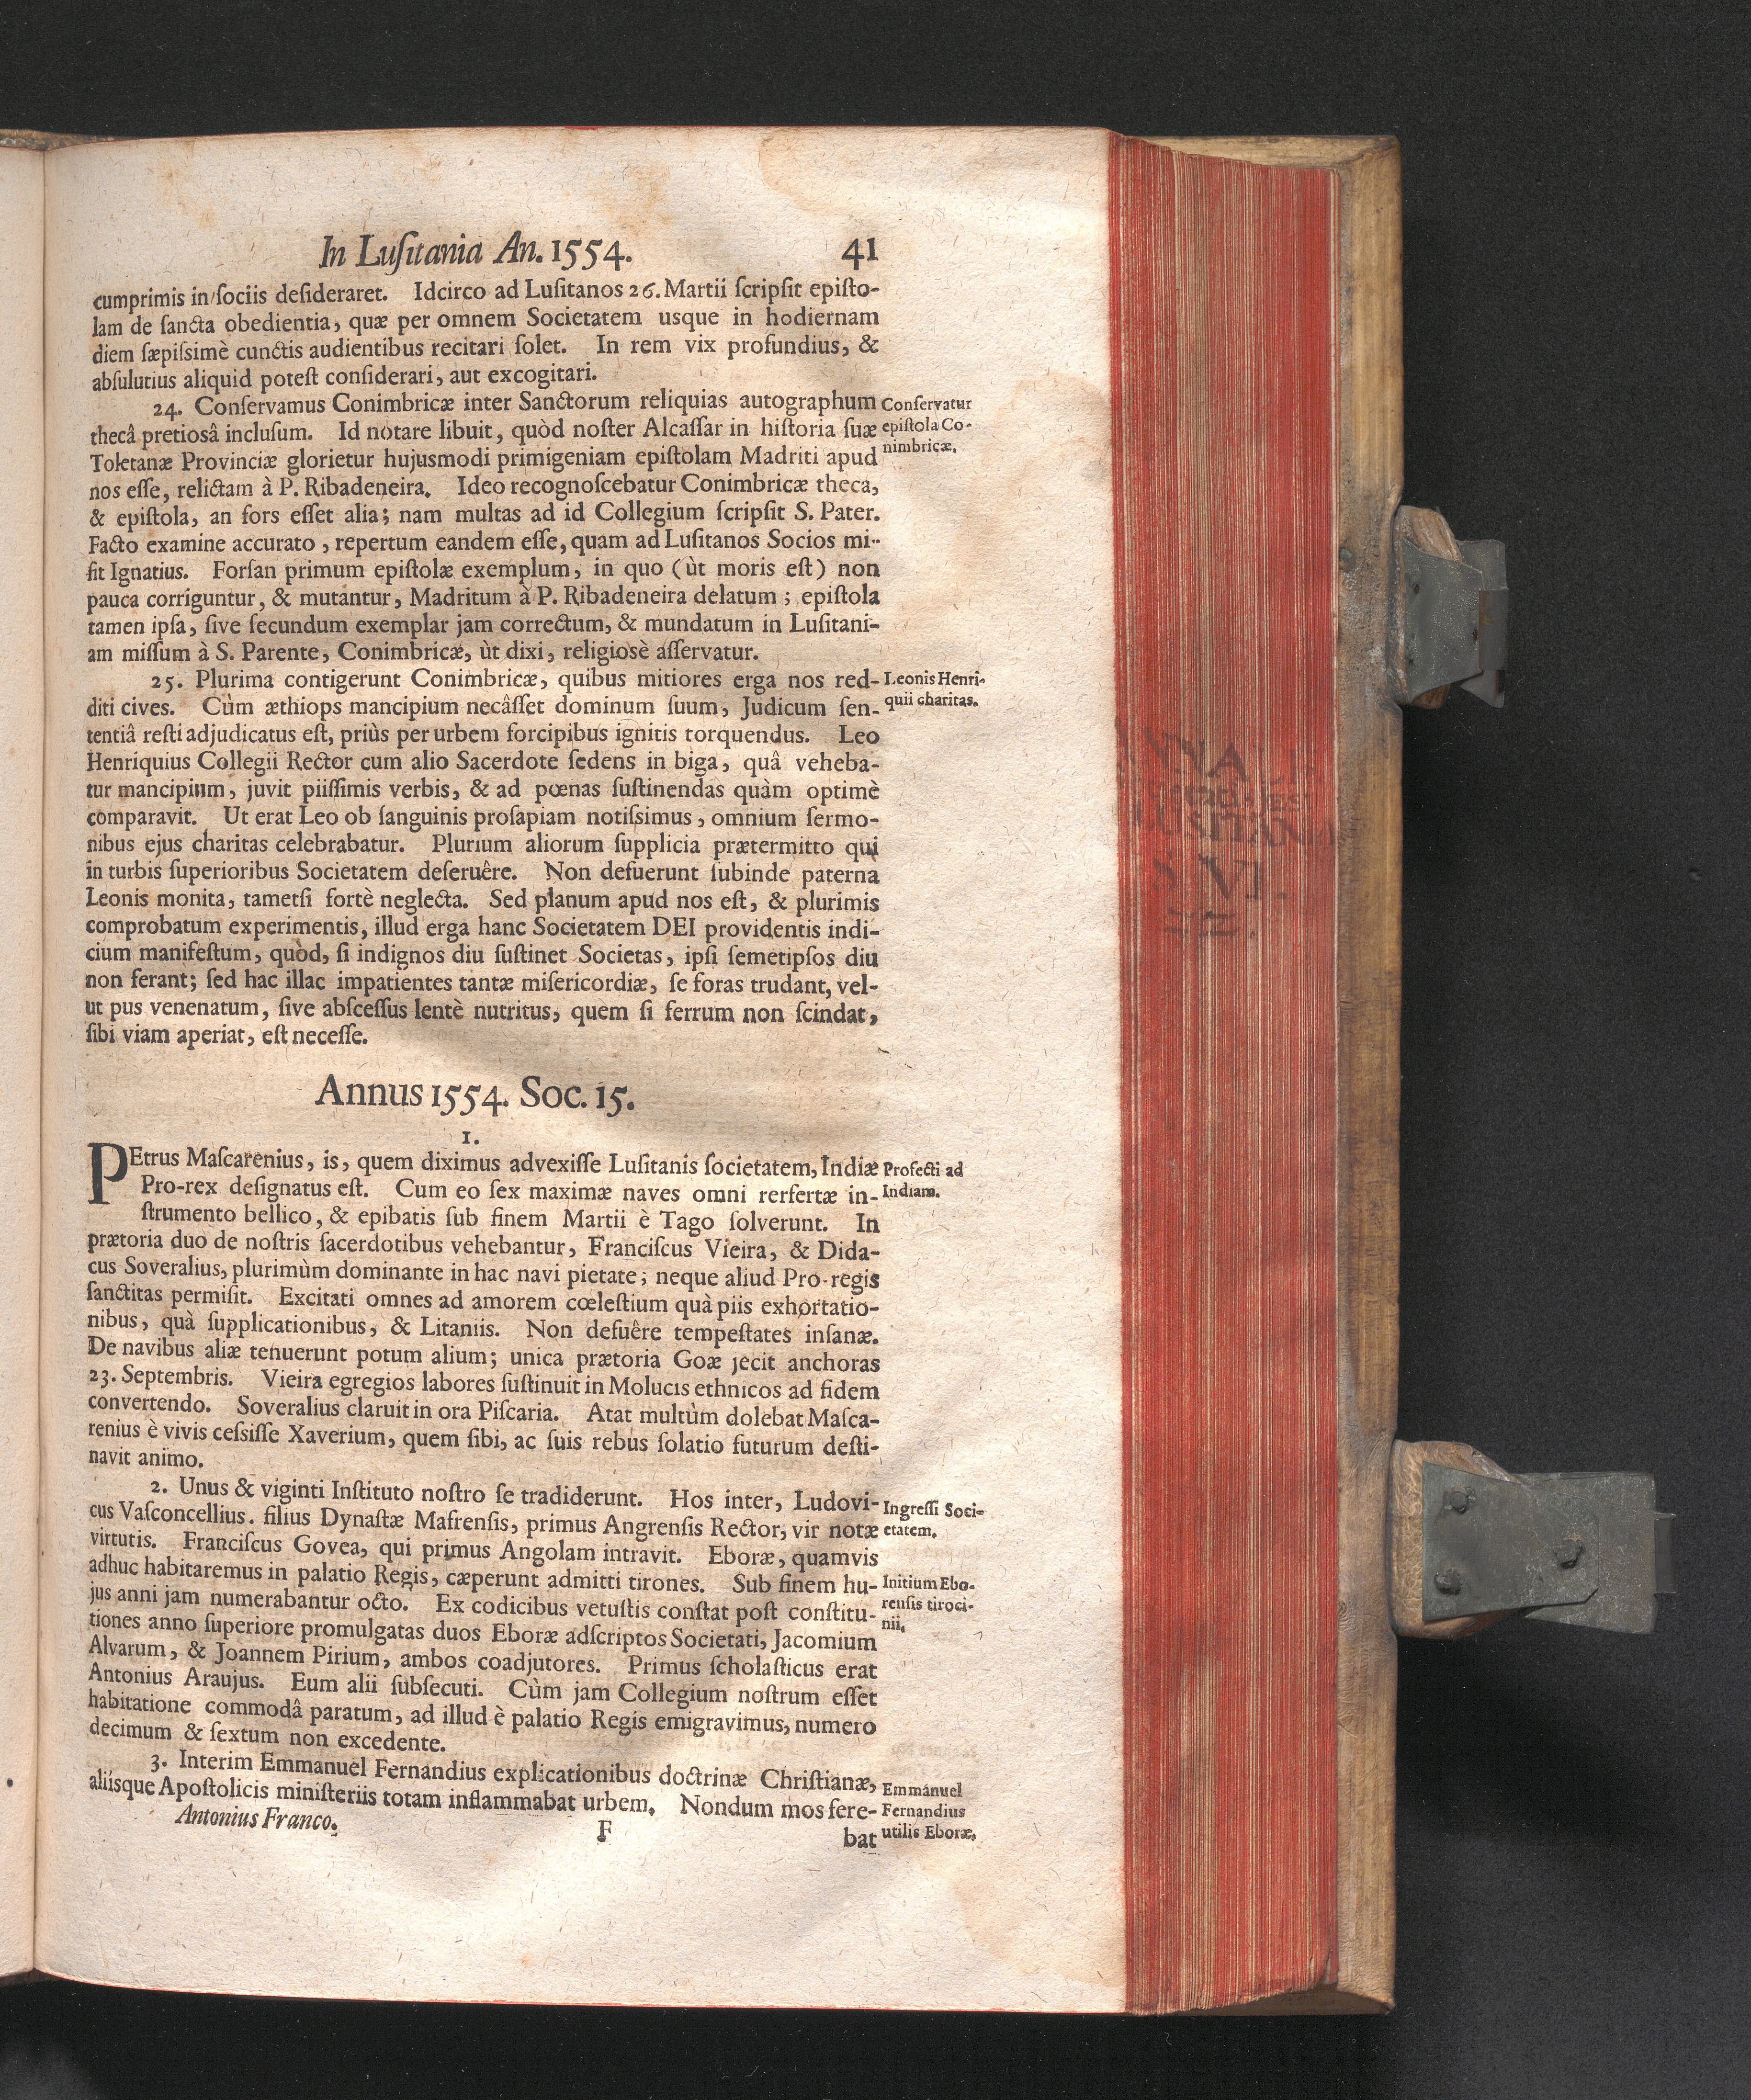 In Lusitania An. 1554. 41
cumprimis in sociis desideraret. Idcirco ad Lusitanos 26. Martii scripsit episto-
lam de sancta obedientia, quæ per omnem Societatem usque in hodiernam
diem sæpissimè cunctis audientibus recitari solet. In rem vix profundius, &
absulutius aliquid potest considerari, aut excogitari.
24. Conservamus Conimbricæ inter Sanctorum reliquias autographum
thecâ pretiosâ inclusum. Id notare libuit, quòd noster Alcassar in historia suæ
Toletanæ Provinciæ glorietur hujusmodi primigeniam epistolam Madriti apud
nos esse, relictam à P. Ribadeneira. Ideo recognoscebatur Conimbricæ theca,
& epistola, an fors esset alia; nam multas ad id Collegium scripsit S. Pater.
Facto examine accurato, repertum eandem esse, quam ad Lusitanos Socios mi-
sit Ignatius. Forsan primum epistolæ exemplum, in quo (ùt moris est) non
pauca corriguntur, & mutantur, Madritum à P. Ribadeneira delatum; epistola
tamen ipsa, sive secundum exemplar jam correctum, & mundatum in Lusitani-
am missum à S. Parente, Conimbricæ, ùt dixi, religiosè asservatur.
Conservatur
epistola Co-
nimbricæ.
25. Plurima contigerunt Conimbricæ, quibus mitiores erga nos red-
diti cives. Cùm æthiops mancipium necâsset dominum suum, Judicum sen-
tentiâ resti adjudicatus est, priùs per urbem forcipibus ignitis torquendus. Leo
Henriquius Collegii Rector cum alio Sacerdote sedens in biga, quâ veheba-
tur mancipium, juvit piissimis verbis, & ad pœnas sustinendas quàm optimè
comparavit. Ut erat Leo ob sanguinis prosapiam notissimus, omnium sermo-
nibus ejus charitas celebrabatur. Plurium aliorum supplicia prætermitto qui
in turbis superioribus Societatem deseruêre. Non defuerunt subinde paterna
Leonis monita, tametsi fortè neglecta. Sed planum apud nos est, & plurimis
comprobatum experimentis, illud erga hanc Societatem DEI providentis indi-
cium manifestum, quòd, si indignos diu sustinet Societas, ipsi semetipsos diu
non ferant; sed hac illac impatientes tantæ misericordiæ, se foras trudant, vel-
ut pus venenatum, sive abscessus lentè nutritus, quem si ferrum non scindat,
sibi viam aperiat, est necesse.
Leonis Henri-
quii charitas.
Annus 1554. Soc. 15.
1.
PEtrus Mascarenius, is, quem diximus advexisse Lusitanis societatem, Indiæ
Pro-rex designatus est. Cum eo sex maximæ naves omni rerfertæ in-
strumento bellico, & epibatis sub finem Martii è Tago solverunt. In
prætoria duo de nostris sacerdotibus vehebantur, Franciscus Vieira, & Dida-
cus Soveralius, plurimùm dominante in hac navi pietate; neque aliud Pro-regis
sanctitas permisit. Excitati omnes ad amorem cœlestium quà piis exhortatio-
nibus, quà supplicationibus, & Litaniis. Non defuêre tempestates insanæ.
De navibus aliæ tenuerunt potum alium; unica prætoria Goæ jecit anchoras
23. Septembris. Vieira egregios labores sustinuit in Molucis ethnicos ad fidem
convertendo. Soveralius claruit in ora Piscaria. Atat multùm dolebat Masca-
renius è vivis cessisse Xaverium, quem sibi, ac suis rebus solatio futurum desti-
navit animo.
Profecti ad
Indiam.
2. Unus & viginti Instituto nostro se tradiderunt. Hos inter, Ludovi-
cus Vasconcellius. filius Dynastæ Mafrensis, primus Angrensis Rector, vir notæ
virtutis. Franciscus Govea, qui primus Angolam intravit. Eboræ, quamvis
adhuc habitaremus in palatio Regis, cæperunt admitti tirones. Sub finem hu-
jus anni jam numerabantur octo. Ex codicibus vetustis constat post constitu-
tiones anno superiore promulgatas duos Eboræ adscriptos Societati, Jacomium
Alvarum, & Joannem Pirium, ambos coadjutores. Primus scholasticus erat
Antonius Araujus. Eum alii subsecuti. Cùm jam Collegium nostrum esset
habitatione commodâ paratum, ad illud è palatio Regis emigravimus, numero
decimum & sextum non excedente.
Ingressi Soci-
etatem.
Initium Ebo-
rensis tiroci-
nii.
3. Interim Emmanuel Fernandius explicationibus doctrinæ Christianæ,
aliisque Apostolicis ministeriis totam inflammabat urbem. Nondum mos fere-
Emmanuel
Fernandius
utilis Eboræ.
Antonius Franco. F bat
LUSITAN
S. VI.